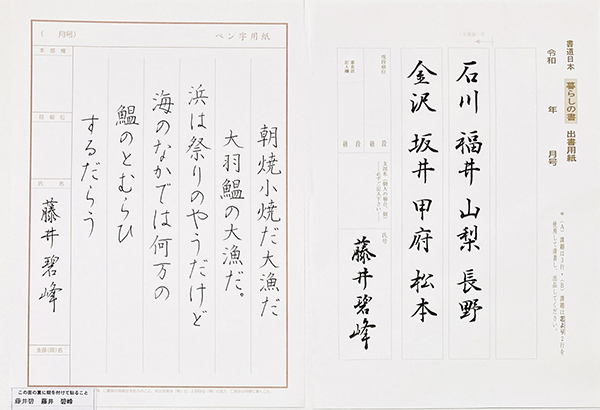 (　月号)
ペン字用紙
朝焼小焼だ大漁だ
大羽鰮の大漁だ。
浜は祭りのやうだけど
海のなかでは何万の
鰮のとむらひ
するだらう
氏名
藤井碧峰
この面の裏に糊を付けて貼ること
藤井碧　藤井　碧峰
書道日本　暮らしの書　出書用紙
令和　年　月号
石川　福井　山梨　長野
金沢　坂井　甲府　松本
藤井碧峰